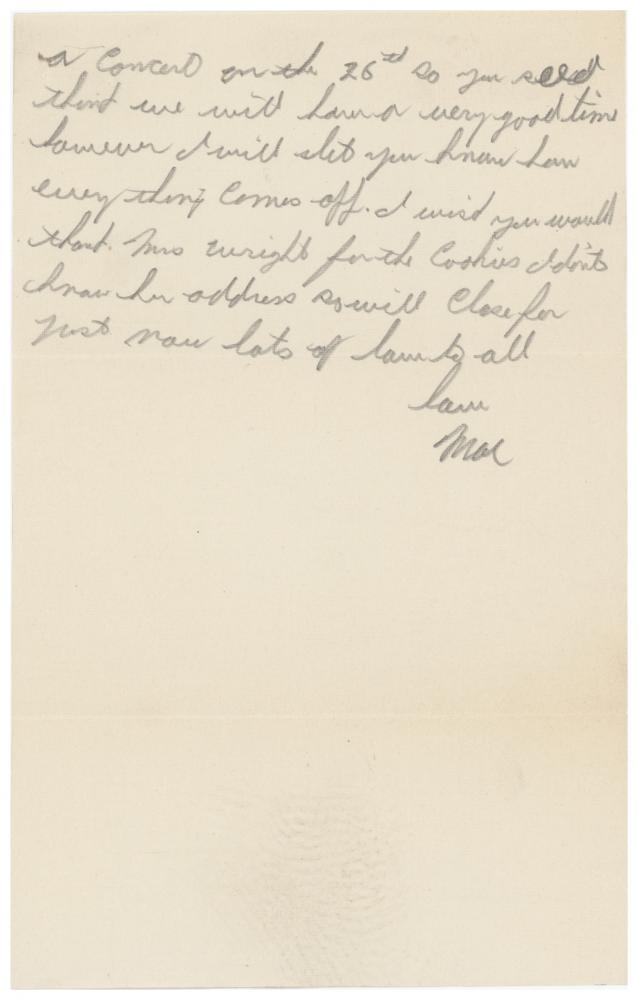 a Concert on the 26th so you see I
think we will have a very good time
however I will let you know how
every thing Comes off. I wish you would
thank Mrs Wright for the Cookies I don't
know her address so will Close for
just now lots of love to all
love
Mac